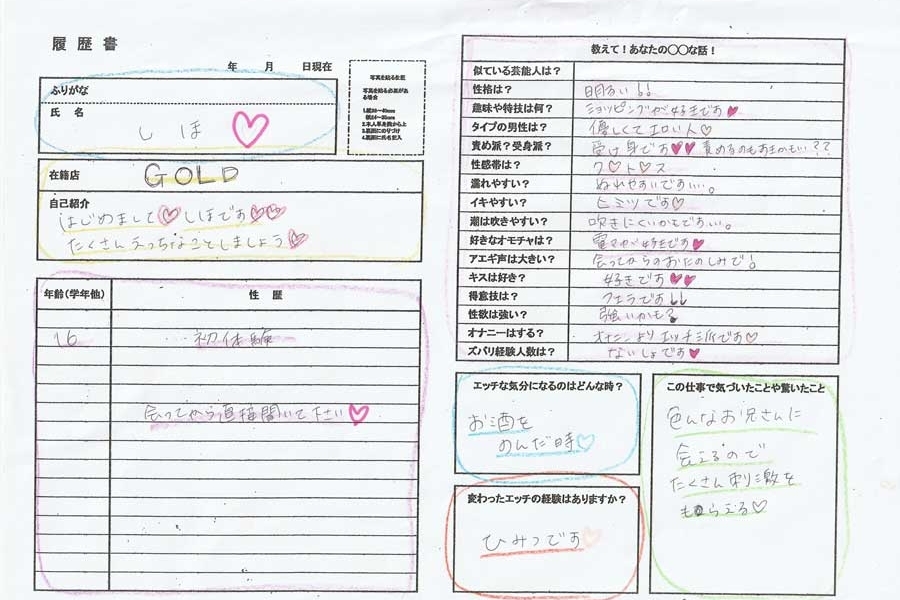 履歴書
年　月　日現在
ふりがな
氏 名
しほ♡
写真を貼る位置
在籍店
GOLD
自己紹介
はじめまして♡しほです♡♡
たくさんえっちなことしましょう♡
年齢(学年他)　性 歴
16　初体験
会ってから直接聞いて下さい♡
教えて！あなたの◯◯な話！
似ている芸能人は？
性格は？　明るい!!
趣味や特技は何？　ショッピングが好きです♥
タイプの男性は？　優しくてエロい人♡
責め派？受身派？　受け身です♥♥ 責めるのもあまかもい??
性感帯は？　ク♡ト♡ス
濡れやすい？　ぬれやすいですい。
イキやすい？　ヒミツです♡
潮は吹きやすい？　吹きにくいかもですい。
好きなオモチャは？　電マが好きです♥
アエギ声は大きい？　会ってからのおたのしみで!
キスは好き？　好きです♥♥
得意技は？　フェラです!!
性欲は強い？　強いかも?
オナニーはする？　オナニーよりエッチ派です♡
ズバリ経験人数は？　ないしょです♥
エッチな気分になるのはどんな時？
お酒を
のんだ時♡
変わったエッチの経験はありますか？
ひみつです♡
この仕事で気づいたことや驚いたこと
色んなお兄さんに
会えるので
たくさん刺激を
もらえる♡